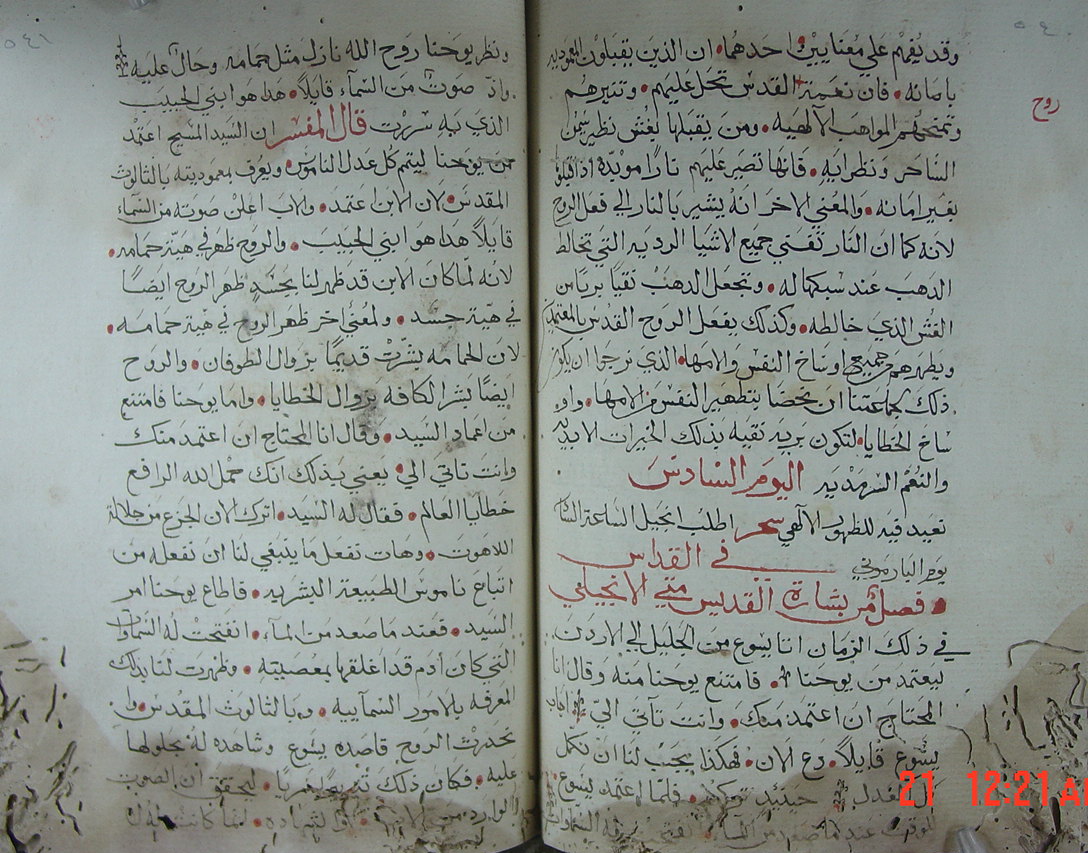 ٥٤٠
وقد يفهم علي معنايين احدهما. ان الذين يقبلون المعموديه
بامانه. فان نعمة القدس تحل عليهم. وتنيرهم
روح
وتمنحهم المواهب الالهيه. ومن يقبلها بغش نظير سمن
الساحر ونظرايه. فانها تصير عليهم نارًا مويّده اذ اقبلوا
بغير امانه. والمعني الاخر انه يشير بالنار الي فعل الروح
لانه كما ان النار تفني جميع الاشيا الرديه التي تخالط
الدهب عند سبكها له. وتجعل الدهب نقيا بريًا من
الغش الذي خالطه. وكذلك يفعل الروح القدس بالمعتمدين
ويطهرهم من جميع اوساخ النفس والامها. الذي نرجوا ان يكون
ذلك لجماعتنا ان يخصنا بتطهير النفس من الامها. واو
ساخ الخطايا. لتكون بريه نقيه بذلك الخيرات الابديه
والنعم السرمديه اليوم السادس
تعيد فيه للظهور الالهي سحر اطلب انجيل الساعة الثالثه
يوم البارموني في القداس
فصل من بشارة القديس متي الانجيلي
في ذلك الزمان اتا يسوع من الجليل الي الاردن
ليعتمد من يوحنا. فامتنع يوحنا منه وقال انا
المحتاج ان اعتمد منك. وانت تآتي اليّ. اجاب
يسوع قايلاً. دع الان. فهكذا يجب لنا ان نكمل
كل العدل. حينيد تركه. فلمّا اعتمد يسوع
للوقت عند ما صعد من الماء. انفتحت له السماوات
٥٤١
ونظر يوحنا روح الله نازلا مثل حمامه وحال عليه
واذ صوت من السمآء قايلاً. هدا هو ابني الحبيب
الذي به سررت قال المفسر ان السيد المسيح اعتمد
من يوحنا ليتم كل عدل الناموس. ويعرف بمعموديته بالثالوث
المقدس. لان الابن اعتمد. والاب اعلن صوته من السماء
قايلاً هدا هو ابني الحبيب. والروح ظهر في هيّة حمامه.
لانه لما كان الابن قد ظهر لنا بجسدٍ ظهر الروح ايضًا
في هيّة جسد. ولمعنًي اخر ظهر الروح في هيّة حمامه.
لان الحمامه بشّرت قديمًا بزوال الطوفان. والروح
ايضًا بشر الكافه بزوال الخطايا. واما يوحنا فامتنع
من اعماد السيد. وقال انا المحتاج ان اعتمد منك
وانت تاتي الي. يعني بذلك انك حمل الله الرافع
خطايا العالم. فقال له السيد. اترك الان الجزع من جلالة
اللاهوت. وهات نفعل ما ينبغي لنا ان نفعله من
اتباع ناموس الطبيعة البشريه. فاطاع يوحنا امر
السيد. فعند ما صعد من المآء. انفتحت له السماوات
التي كان ادم قد اغلقها بمعصيته. وظهرت لنا بذلك
المعرفه بالامور السمآييه. وبالثالوث المقدس. وا
نحدرت الروح قاصده يسوع وشاهده له بحلولها
عليه. فكان ذلك تدبيرًا بهريًا. ليحقق ان الصوت
الوارد من